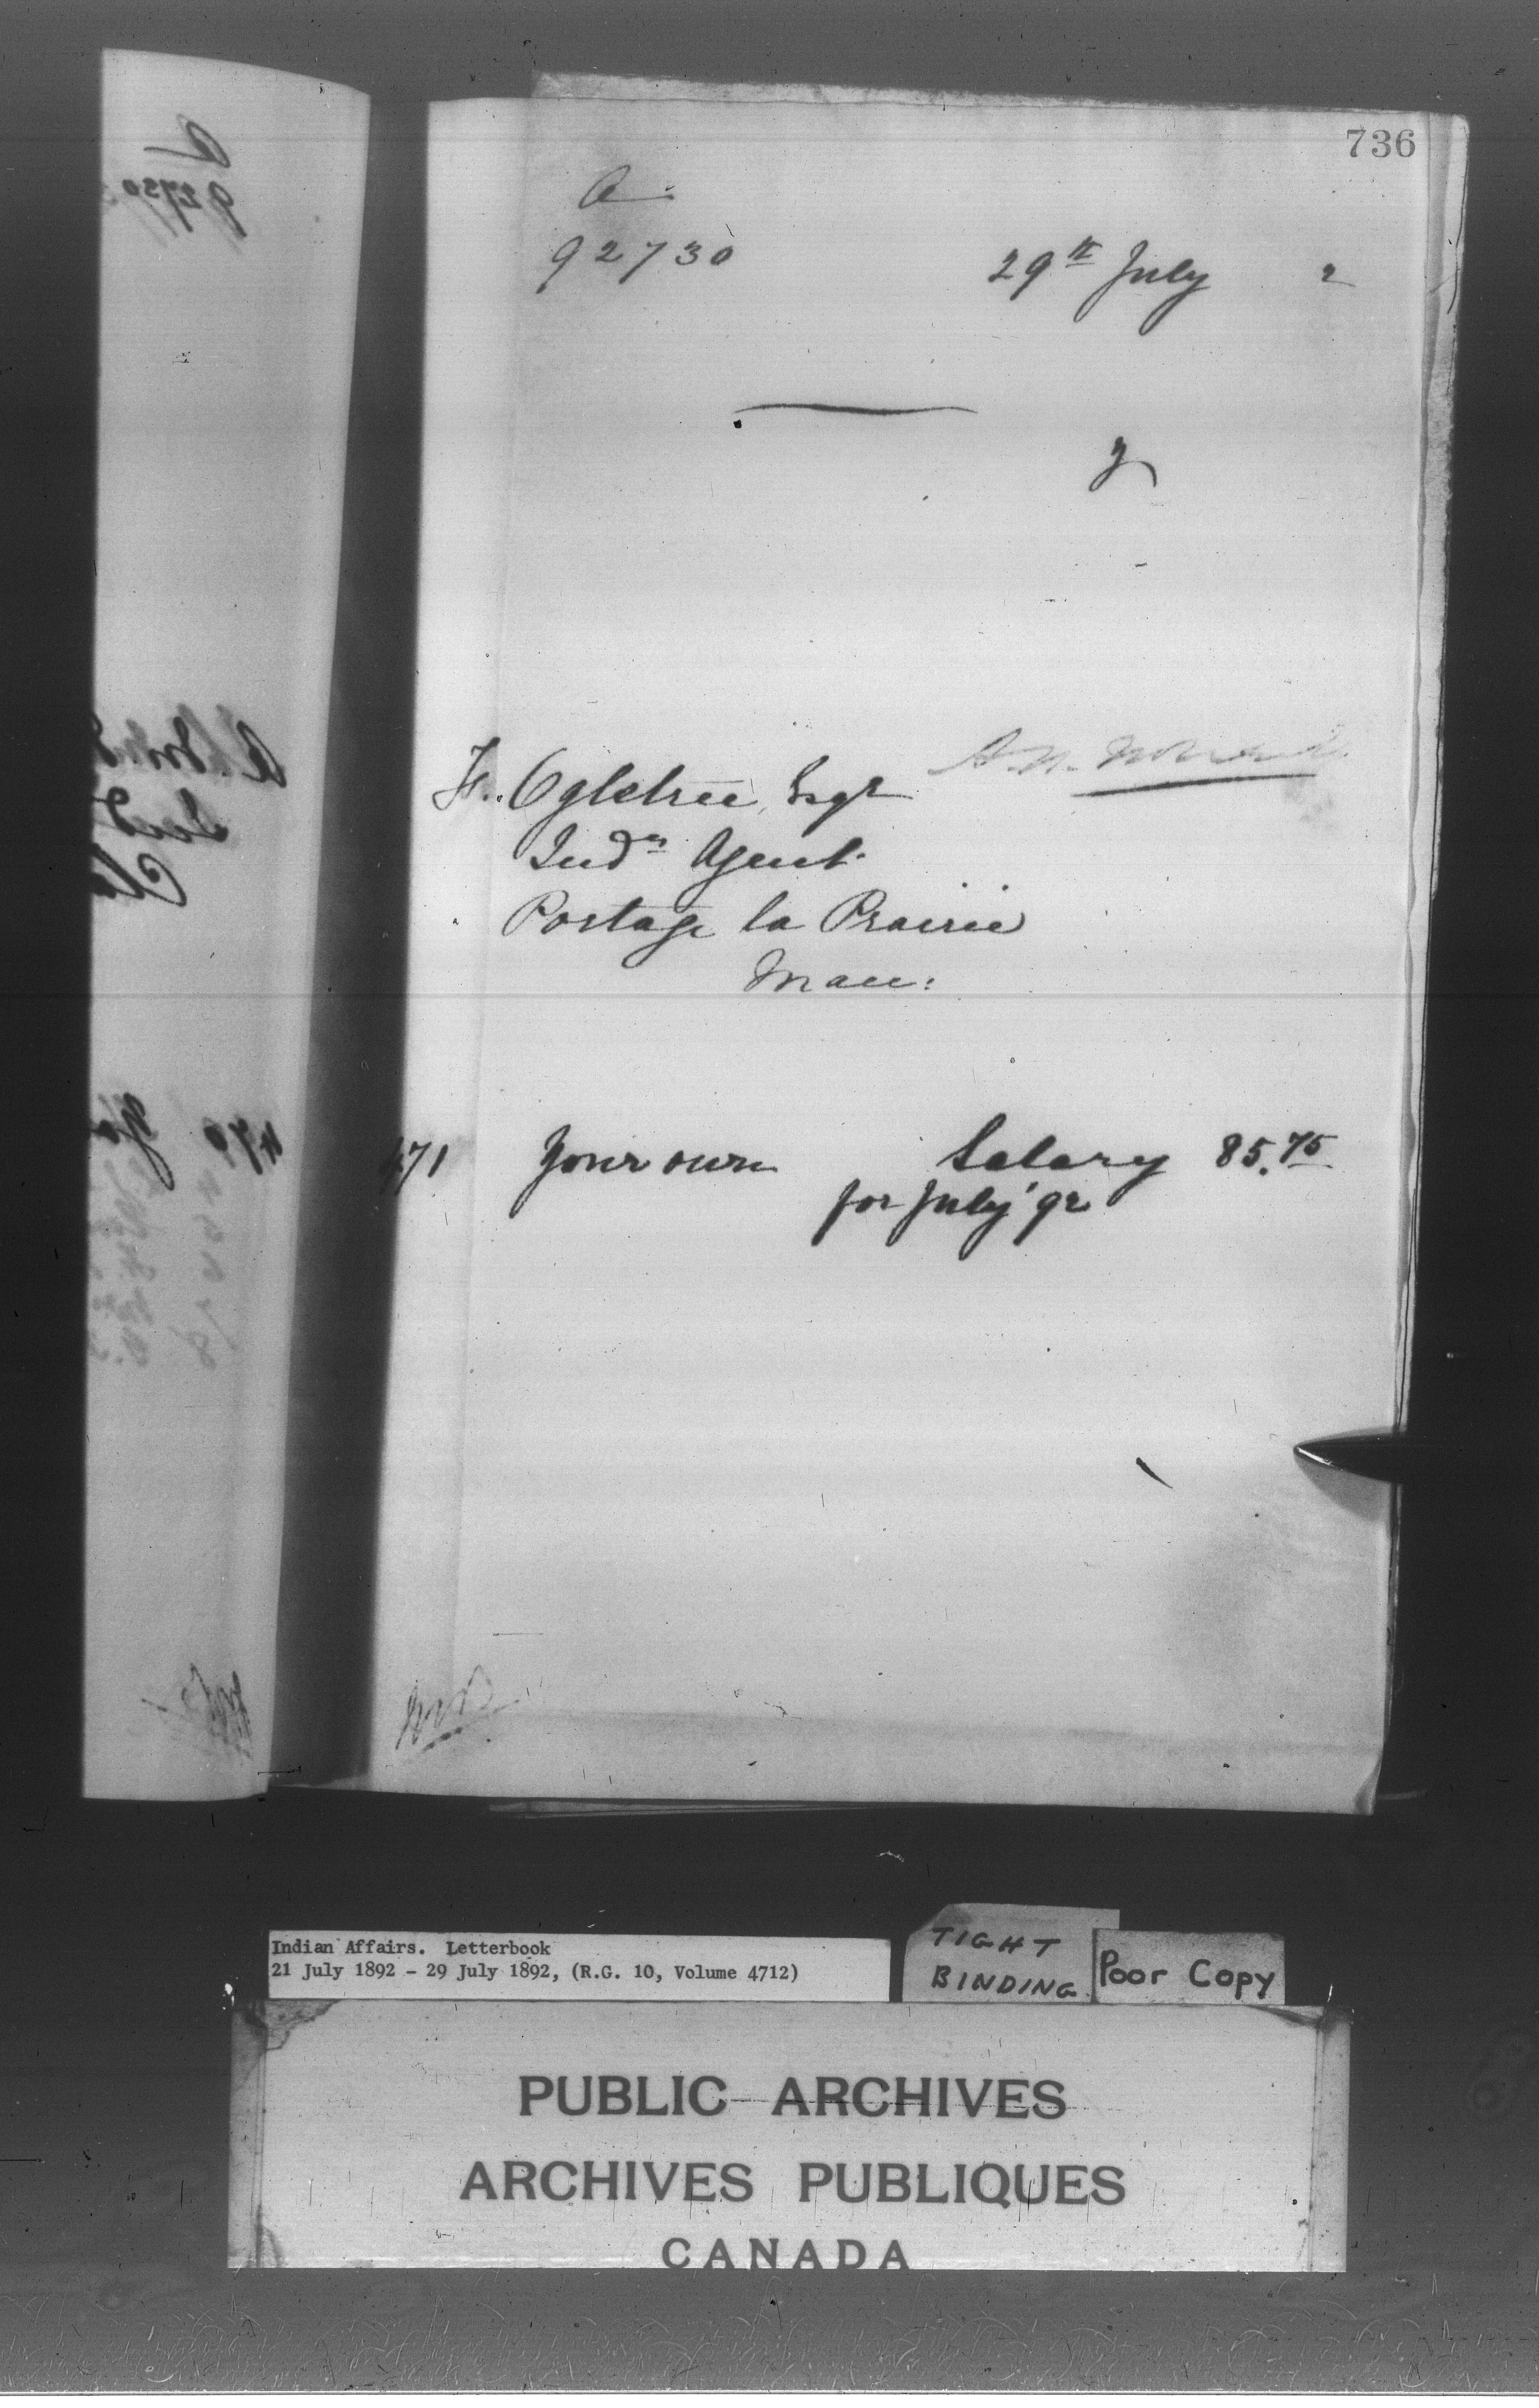 736
A
92730
29th July 2
F. Ogletree, Esqr
Indn Agent
Portage la Prairie
Man:
471 Your own Salary 85.75
for July '92
Indian Affairs. Letterbook
21 July 1892 - 29 July 1892, (R.G. 10, Volume 4712)
TIGHT
BINDING
Poor Copy
PUBLIC ARCHIVES
ARCHIVES PUBLIQUES
CANADA